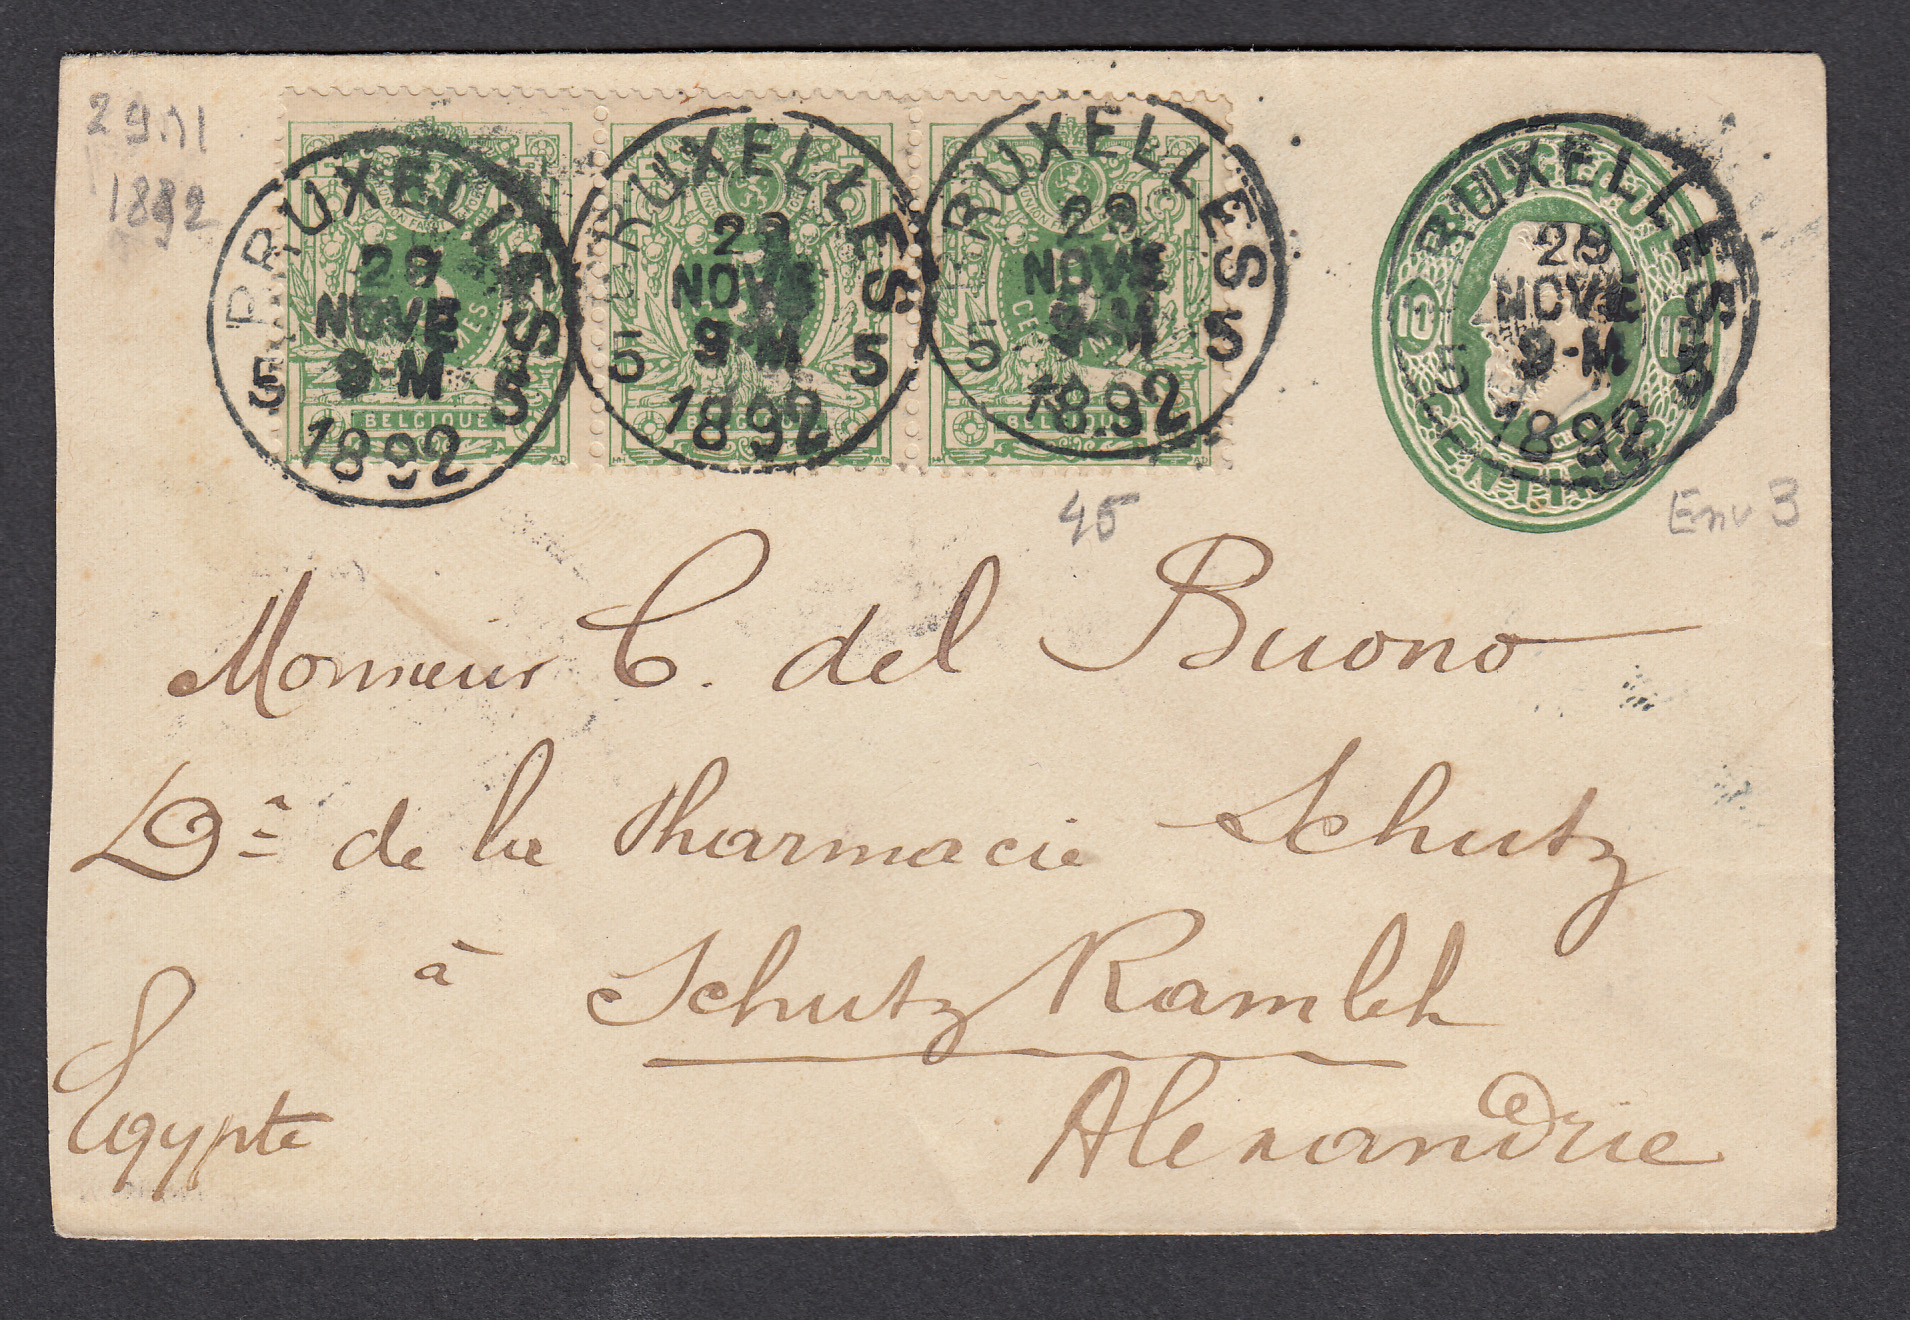 29 11
1892
BRUXELLES
29
NOVE
9-M
5 5
1892
BELGIQUE
BRUXELLES
29
NOVE
9-M
5 5
1892
BELGIQUE
BRUXELLES
29
NOVE
9-M
5 5
1892
BELGIQUE
BELGIQUE
10 10
CENTIMES
BRUXELLES
29
NOVE
9-M
5 5
1892
45
Env 3
Monsieur C. del Buono
Dr de la Pharmacie Schutz
à Schutz Ramleh
Alexandrie
Egypte